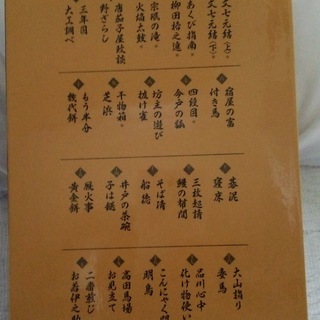 文七元結(上)
文七元結(下)
あくび指南
柳田格之進
宗珉の滝
火焔太鼓
唐茄子屋政談
野ざらし
三年目
大工調べ
宿屋の富
付き馬
四段目
今戸の狐
坊主の遊び
抜け雀
干物箱
芝浜
もう半分
幾代餅
碁泥
寝床
三枚起請
鰻の幇間
そば清
船徳
井戸の茶碗
子は鎹
厩火事
黄金餅
大山詣り
妾馬
品川心中
化け物使い
こんにゃく問答
明烏
高田馬場
お見立て
二番煎じ
お若伊之助